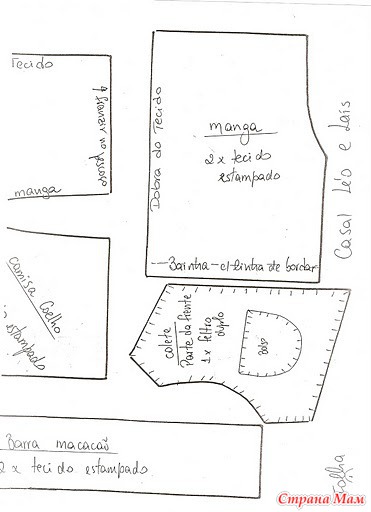 Tecido
manga
Dobra do Tecido
manga
2 x tecido
estampado
---Bainha-c/-linha de bordar
Casal Léo e Laís
camisa Coelho
estampado
colete
Parte da frente
1 x feltro
duplo
Bolso
Barra macacão
2 x tecido estampado
Folha
Страна Мам